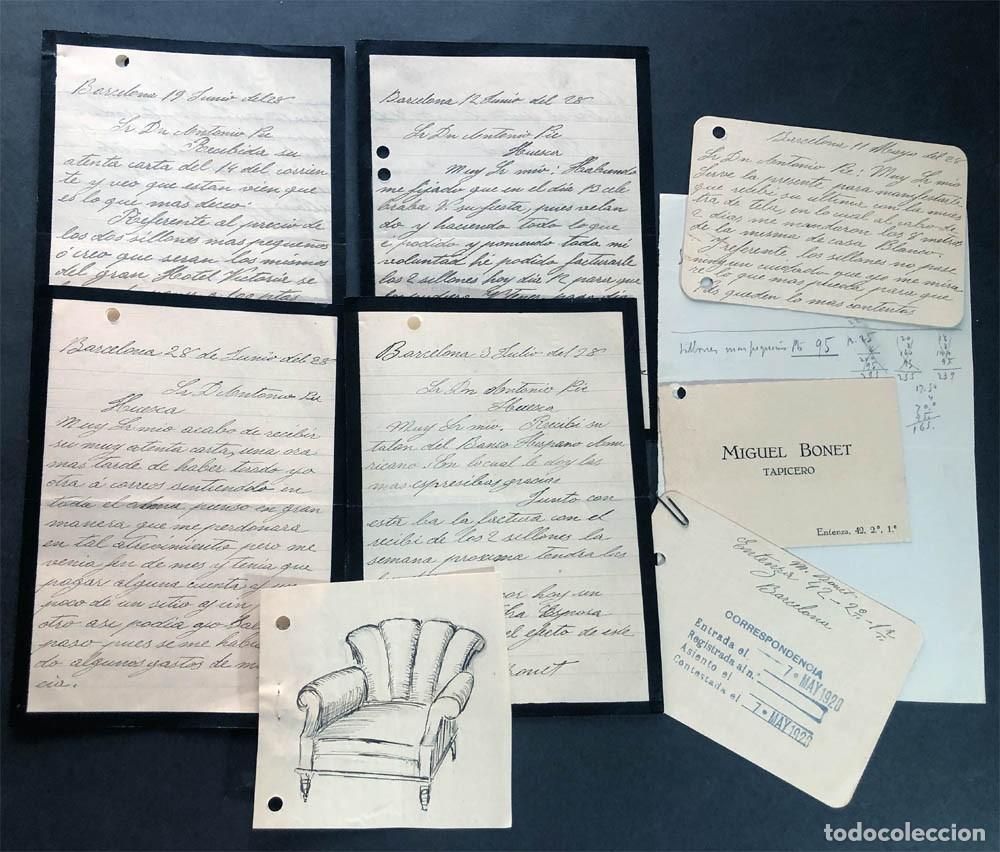 Barcelona 19 Junio del 28
Sr Dn Antonio Pie
Recibida su
atenta carta del 14 del corrien
te y veo que estan vien que
es lo que mas deceo.
Referente al precio de
los dos sillones mas pequeños
creo que seran los mismos
del gran Hostel Victoria se
Barcelona 12 Junio del 28
Sr Dn Antonio Pie
Huesca
Muy Sr mio: Habiendo
me fijado que en el dia 13 cele
braba V. su fiesta, pues velan
do y haciendo todo lo que
e podido y poniendo toda mi
voluntad he podido facturarle
los 2 sillones hoy dia 12 para que
Barcelona 11 Mayo del 28
Sr Dn Antonio Pie: Muy Sr mio
Sirve la presente para manifestarle
que recibi su ultima con la mues
tra de tela, en lo cual al cabo de
2 dias me mandaron los 8 metros
de la misma de casa Blanco.
Y referente los sillones no pase
ningun cuidado que yo me mira
re lo que mas pueda para que
queden lo mas contentos
sillones mas pequeños Pts 95
Barcelona 28 de Junio del 28
Sr D. Antonio Pie
Huesca
Muy Sr mio acabo de recibir
su muy atenta carta, una ora
mas tarde de haber tirado yo
otra á correos sentiendolo en
toda el alma pienso en gran
manera que me perdonara
en tal atrevimiento pero me
venia fin de mes y tenia que
pagar alguna cuenta y un
poco de un sitio y un
otro asi podia yo
paso pues se me
do algunos gastos de
cia.
Barcelona 3 Julio del 28
Sr Dn Antonio Pie
Huesca
Muy Sr mio. Recibi su
talon del Banco Hispano Ame
ricano. En lo cual le doy las
mas espresibas gracias
Junto con
esta ba la factura con el
recibi de los 2 sillones la
semana proxima tendra las
hoy un
Esposa
el efecto de este
Bonet
MIGUEL BONET
TAPICERO
Entenza, 42, 2.º, 1.ª
M. Bonet
Entenza 42-2º-1ª
Barcelona
CORRESPONDENCIA
Entrada el 7 MAY 1920
Registrada al n.º
Asiento el
Contestada el 7 MAY 1920
todocoleccion